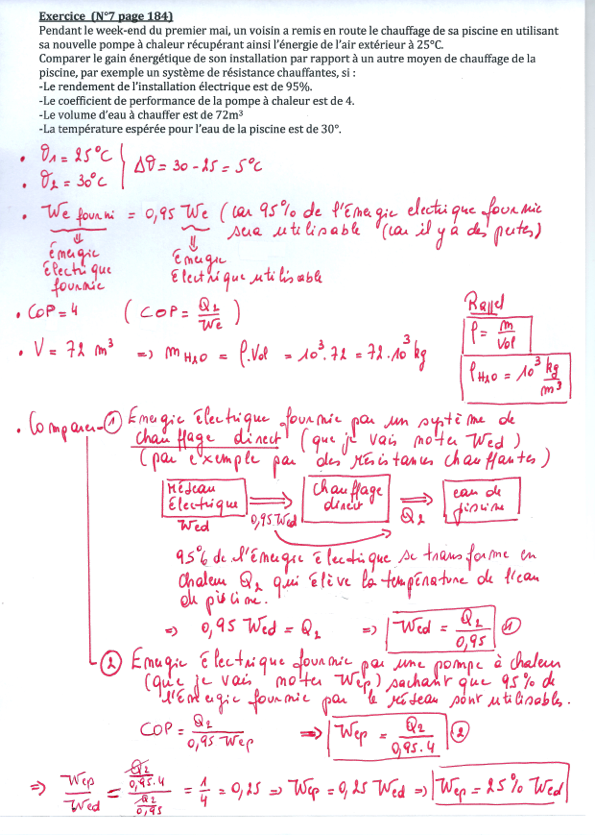 Exercice (N°7 page 184)
Pendant le week-end du premier mai, un voisin a remis en route le chauffage de sa piscine en utilisant
sa nouvelle pompe à chaleur récupérant ainsi l'énergie de l'air extérieur à 25°C.
Comparer le gain énergétique de son installation par rapport à un autre moyen de chauffage de la
piscine, par exemple un système de résistance chauffantes, si :
-Le rendement de l'installation électrique est de 95%.
-Le coefficient de performance de la pompe à chaleur est de 4.
-Le volume d'eau à chauffer est de 72m³
-La température espérée pour l'eau de la piscine est de 30°.
• θ1 = 25°C
• θ2 = 30°C
Δθ = 30 - 25 = 5°C
• We fourni = 0,95 We (car 95% de l'Energie electrique fournie
sera utilisable (car il y a des pertes)
⇓ énergie électrique fournie
⇓ Energie Electrique utilisable
• COP = 4 (COP = Q2/We)
Rappel
ρ = m/Vol
• V = 72 m³ => m H2O = ρ.Vol = 10³.72 = 72.10³ kg
ρ H2O = 10³ kg/m³
• Comparer ① Energie électrique fournie par un système de
chauffage direct (que je vais noter Wed)
(par exemple par des résistances chauffantes)
Réseau Electrique ⇒ Chauffage direct ⇒ eau de piscine
Wed 0,95 Wed Q2
95% de l'Energie Electrique se transforme en
chaleur Q2 qui élève la température de l'eau
du piscine.
=> 0,95 Wed = Q2 => Wed = Q2/0,95 ①
② Energie Electrique fournie par une pompe à chaleur
(que je vais noter Wep) sachant que 95% de
l'Energie fournie par le réseau sont utilisables.
COP = Q2/0,95 Wep => Wep = Q2/0,95.4 ②
=> Wep/Wed = (Q2/0,95.4)/(Q2/0,95) = 1/4 = 0,25 => Wep = 0,25 Wed => Wep = 25% Wed